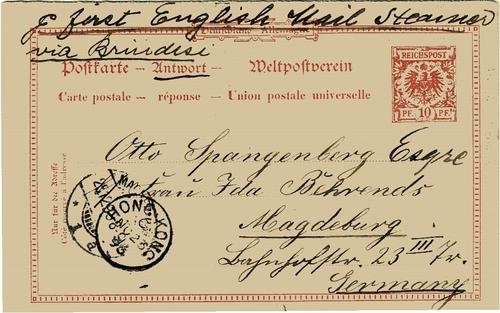 p first English Mail Steamer
via Brindisi
Deutschland Allemagne
Postkarte – Antwort – Weltpostverein
Carte postale – réponse – Union postale universelle
REICHSPOST
PF. 10 PF.
Nur für die Adresse
Côté réservé à l'adresse
Otto Spangenberg Esqre
Frau Ida Behrends
Magdeburg
Bahnhofstr. 23 III Tr.
Germany
HONG KONG